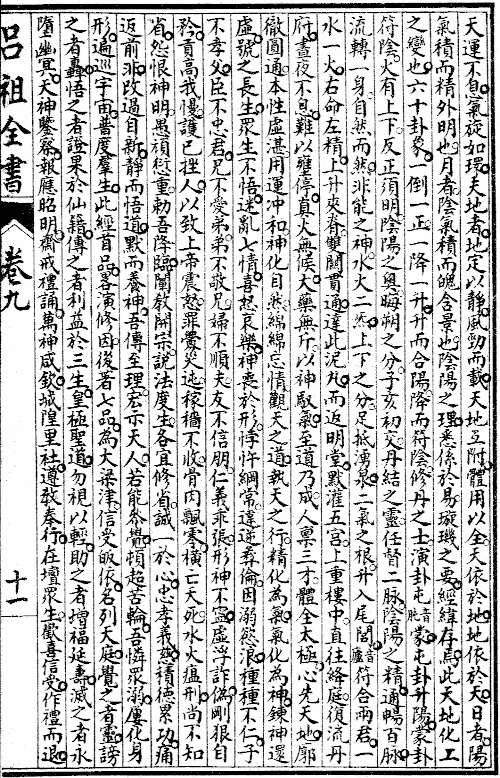 天運不息氣旋如環天地者地定以靜風勁而載天地互附體用以全天依於地地依於天日者陽
氣積而精外明也月者陰氣積而魄含景也陰陽之理悉係於易璇璣之要經緯存焉此天地化工
之變也六十卦象一倒一正一降一升升而合陽降而符陰修丹之士演卦屯音肫蒙屯卦升陽蒙卦
符陰火有上下反正須明陰陽之奧晦朔之分子亥初交丹結之靈任督二脉陰陽之精通暢百脉
流轉一身自然而然非能之神水火二炁上下之分足抵湧泉二氣之根升入尾閭音廬符合兩君一
水一火右命左精上升夾脊雙關貫通達此泥丸而返明堂默灌五宫上重樓中直往絳庭復流丹
府晝夜不息難以壅停真火無候大藥無斤以神馭氣至道乃成人禀三才體全太極心先天地廓
徹圓通本性虛湛用運冲和神化自然綿綿忘情觀天之道執天之行精化為氣氣化為神鍊神還
虛號之長生衆生不悟迷亂七情喜怒哀樂神喪於形悖忤綱常違逆彞倫因溺慾浪種種不仁子
不孝父臣不忠君兄不愛弟弟不敬兄婦不順夫友不信朋仁義乖張形神不寧虛浮詐偽剛狠自
矜貢高我慢護已挫人以致上帝震怒罪舋災迍稼穡不收骨肉飄零橫亡夭死水火瘟刑尚不知
省怨恨神明愚頑衍重勅吾降臨闡敘開宗說法度生各宜修省誠一於心忠孝義慈積德累功痛
返前非改過自新靜而悟道默而養神吾傳至理宏示天人若能參覺頓超苦輪吾憐衆溺屢化身
形遍巡宇宙普度羣生此經首品各演修因後著七品為大梁津信受皈依名列天庭覺之者靈謗
之者轟悟之者證果於仙籍傳之者利益於三生皇極聖道勿視以輕助之者增福延壽滅之者永
墮幽冥天神鑒察報應昭明齋戒禮誦萬神咸欽城隍里社遵敎奉行在壇衆生歡喜信受作禮而退
呂祖全書 卷九 十一